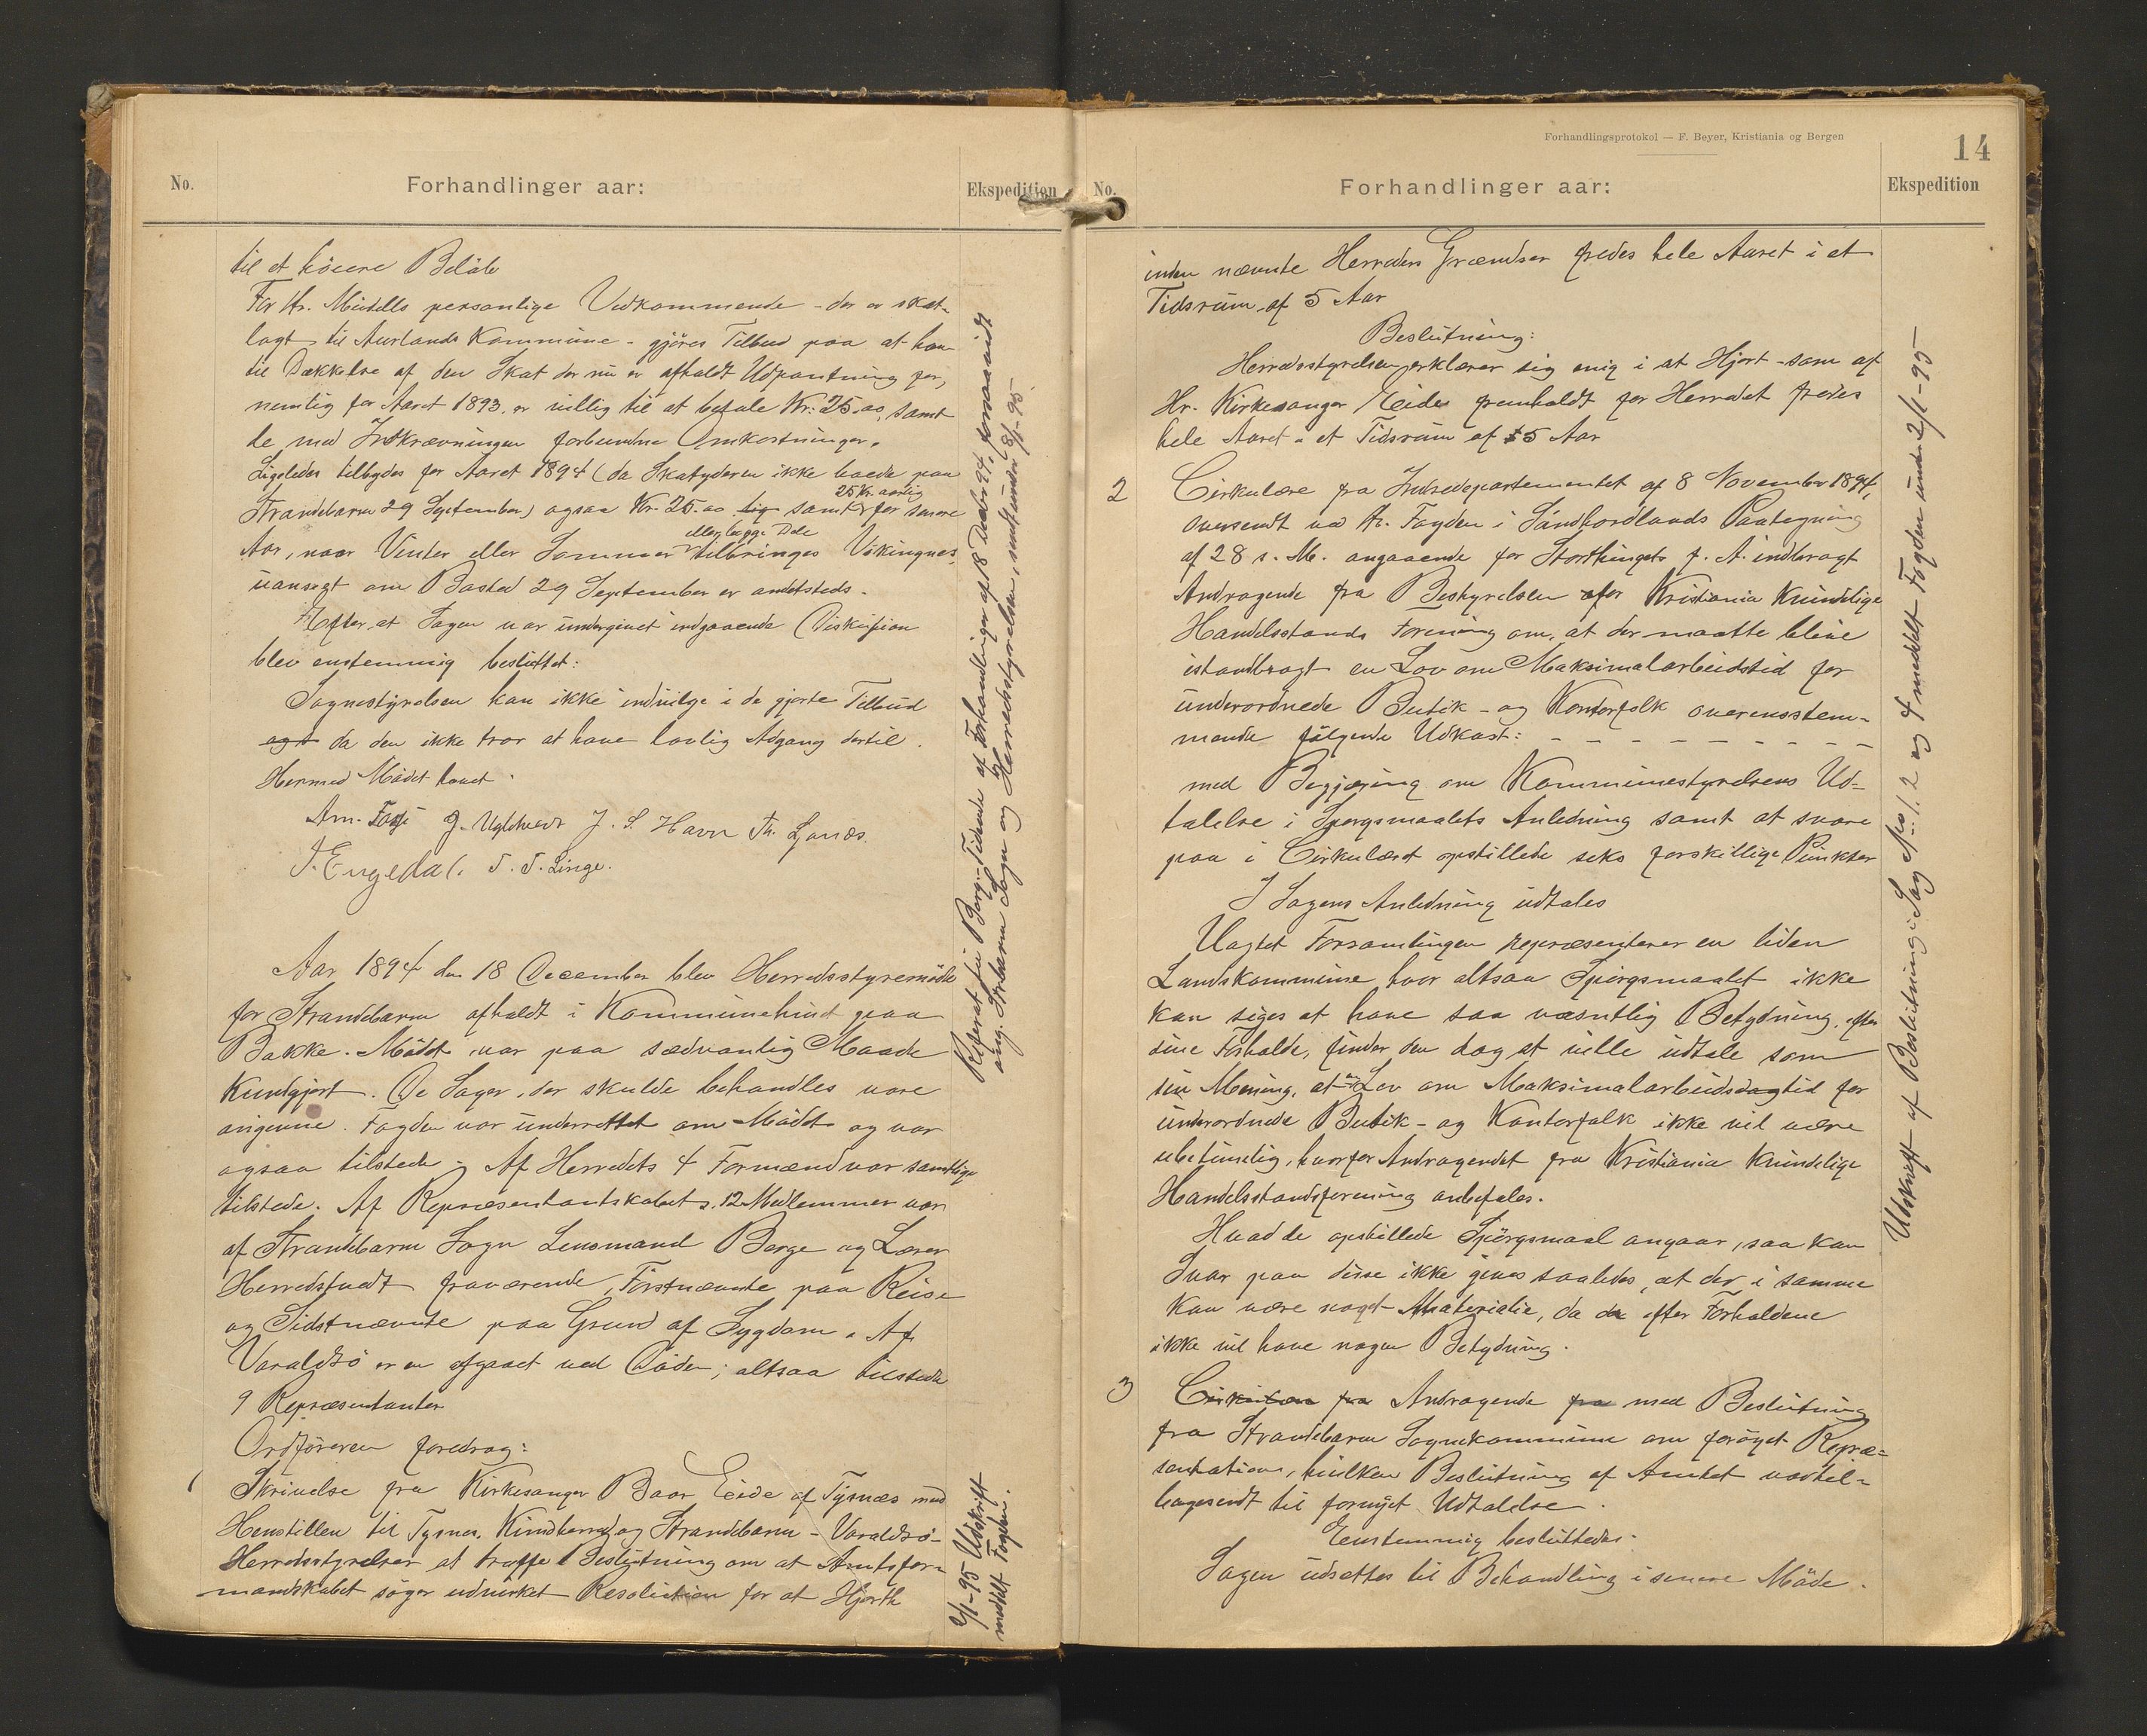 No.
Forhandlinger aar:
Ekspedition
til et höiere Beløb
For Hr. Meidells personlige Vedkommende - der er skat-
lagt til Aurlands Kommune - gjöres Tilbud paa at han
til Dækkelse af den Skat der nu er afholdt Udpantning for,
nemlig for Aaret 1893. er villig til at betale Kr. 25.00, samt
de med Indkrævningen forbundne Omkostninger.
Ligeledes tilbydes for Aaret 1894 (da Skatyderen ikke boede paa
Strandebarm 29 September) ogsaa Kr. 25.00 samt 25 Kr. aarlig for senere
Aar, naar Vinter eller Sommer eller begge Dele tilbringes Vikingnes,
uanseet om Bosted 29 September er andetsteds.
Efter, at Sagen var undergivet indgaaende Diskusion
blev enstemmig besluttet:
Sognestyrelsen kan ikke indvilge i de gjorte Tilbud
da den ikke tror at have lovlig Adgang dertil.
Hermed Mödet hævet.
Am. Fosse J. Ugletveit J. S. Havn Th. Lønæs.
J. Engedal. T. T. Linge.
Aar 1894 den 18 December blev Herredsstyremöde
for Strandebarm afholdt i Kommunehuset paa
Bakke. Mödet var paa sædvanlig Maade
Kundgjort. De Sager, der skulde behandles vare
angivne. Fogden var underrettet om Mödet og var
ogsaa tilstede. Af Herredets 4 Formænd var samtlige
tilstede. Af Repræsentantskabets 12 Medlemmer var
af Strandebarm Sogn Lensmand Berge og Lærer
Herredstvedt fraværende, Förstnævnte paa Reise
og Sidstnævnte paa Grund af Sygdom. Af
Varaldsö er en afgaaet ved Döden; altsaa tilstede
9 Repræsentanter
Ordföreren foredrog:
1 Skrivelse fra Kirkesanger Baar Eide af Tysnæs med
Henstillen til Tysnes, Kvindherred og Strandebarm - Varaldsö-
Herredsstyrelser at træffe Beslutning om at Amtsfor-
mandskabet söger udvirket Resolution for at Hjorte
Referat fil Berg.-Tidende af Forhandlinger af 18 Decbr 94, forsaavidt
ang. Strbarm Sogn og Herredsstyrelsen, sendt under 3/1-95
2/1-95 Udskrift
meddelt Fogden.
Forhandlingsprotokol — F. Beyer, Kristiania og Bergen
14
No.
Forhandlinger aar:
Ekspedition
inden nævnte Herreders Grændser fredes hele Aaret i et
Tidsrum af 5 Aar
Beslutning:
Herredsstyrelsen erklærer sig enig i at Hjort - som af
Hr. Kirkesanger Eide fremholdt for Herredet fredes
hele Aaret i et Tidsrum af 5 Aar
2 Cirkulære fra Indredepartementet af 8 November 1894,
oversendt ved Hr. Fogden i Söndhordlands Paategning
af 28 s. M. angaaende for Storthinget f. A. indbragt
Andragende fra Bestyrelsen for Kristiania Kvindelige
Handelsstands Forening om, at der maatte blive
istandbragt en Lov om Maksimalarbeidstid for
underordnede Butik- og Kontorfolk overensstem-
mende fölgende Udkast: - - - - - - - - -
med Begjæring om Kommunestyrelsens Ud-
talelse i Spørgsmaalets Anledning samt at svare
paa i Cirkulæret opstillede seks forskillige Punkter
I Sagens Anledning udtales
Uagtet Forsamlingen repræsenterer en liden
Landskommune hvor altsaa Spörgsmaalet ikke
kan siges at have saa væsentlig Betydning, efter
sine Forholde, finder den dog at ville udtale som
sin Mening, at en Lov om Maksimalarbeidsdagtid for
underordnede Butik- og Kontorfolk ikke vil være
ubetimelig, hvorfor Andragendet fra Kristiania Kvindelige
Handelsstandsforening anbefales.
Hvad de opstillede Spörgsmaal angaar, saa kan
Svar paa disse ikke gives saaledes, at der i samme
kan være noget Materiale, da de efter Forholdene
ikke vil have nogen Betydning.
3 Cirkulære fra Andragende fra med Beslutning
fra Strandebarm Sognekommune om foröget Repræ-
sentation, hvilken Beslutning af Amtet var til-
bagesendt til fornyet Udtalelse.
Eenstemmig besluttedes:
Sagen udsættes til Behandling i senere Möde.
Udskrift af Beslutning i Sag No 1, 2 og 4 meddelt Fogden under 2/1-95